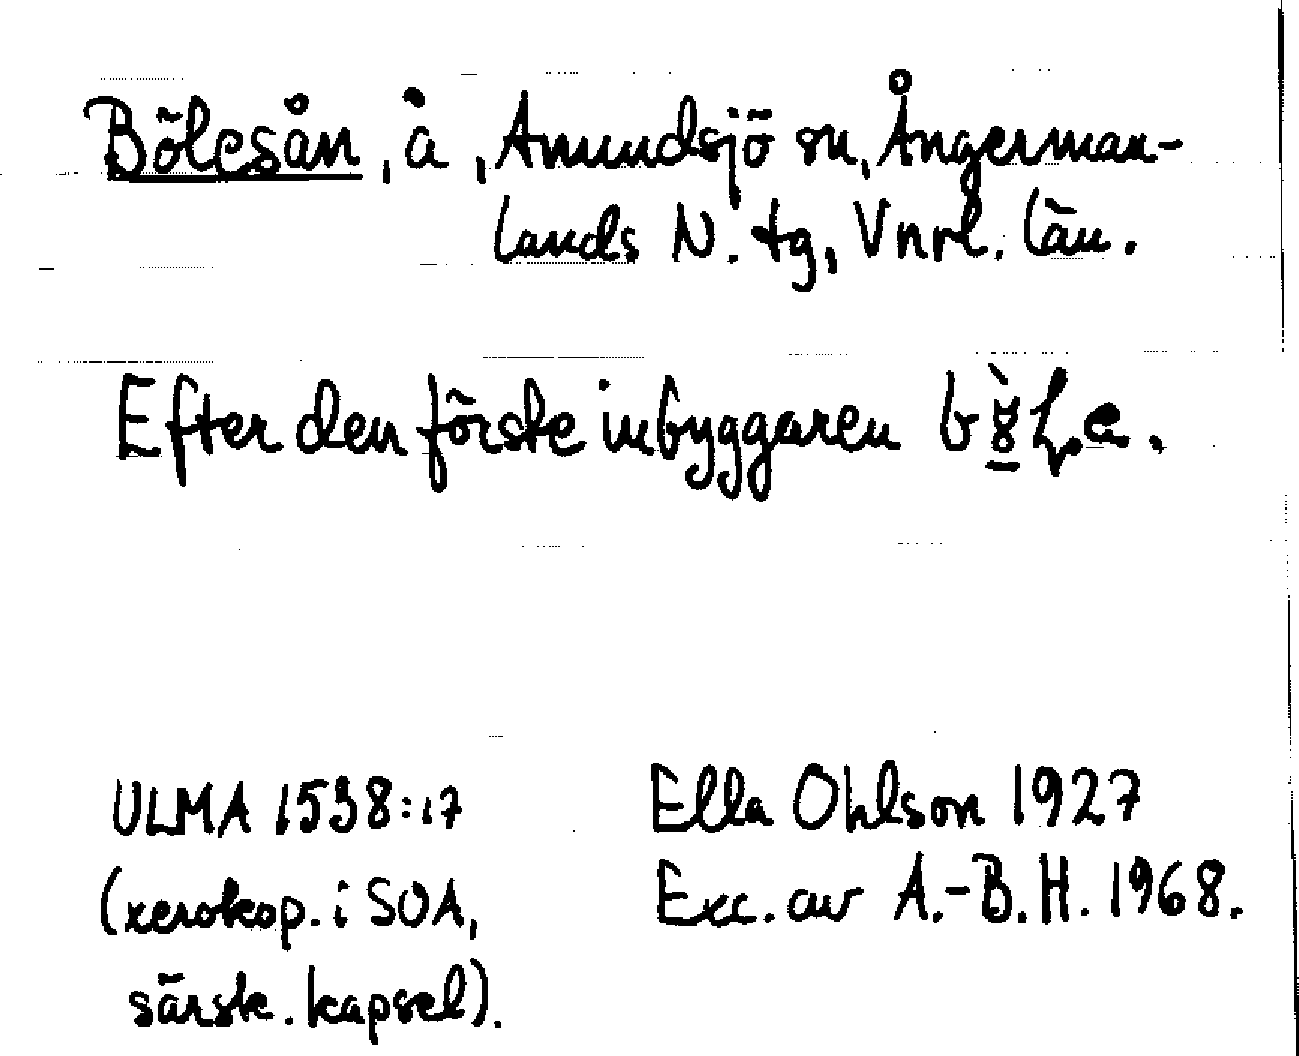 Bölesån, å, Anundsjö sn, Ångerman-
lands N. tg, Vnrl. län.
Efter den förste inbyggaren
ULMA 1538:17
(xerokop. i SOA,
särsk. kapsel).
Ella Ohlson 1927
Exc. av A.-B.H. 1968.